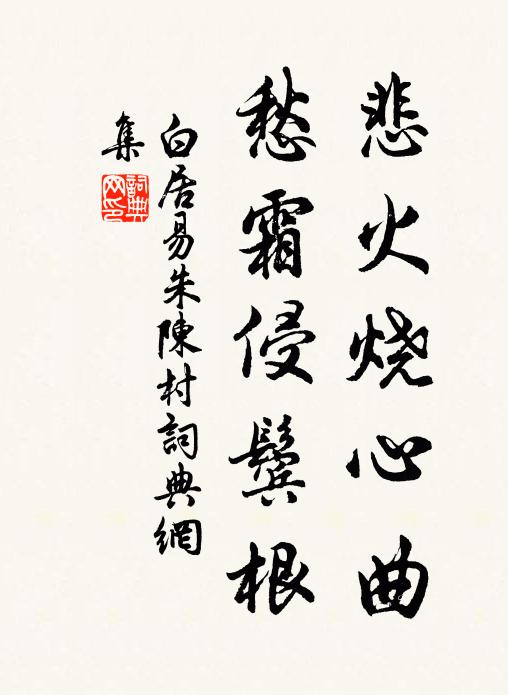 悲火烧心曲
愁霜侵鬓根
白居易朱陳村詞典網
集
詞典
网印